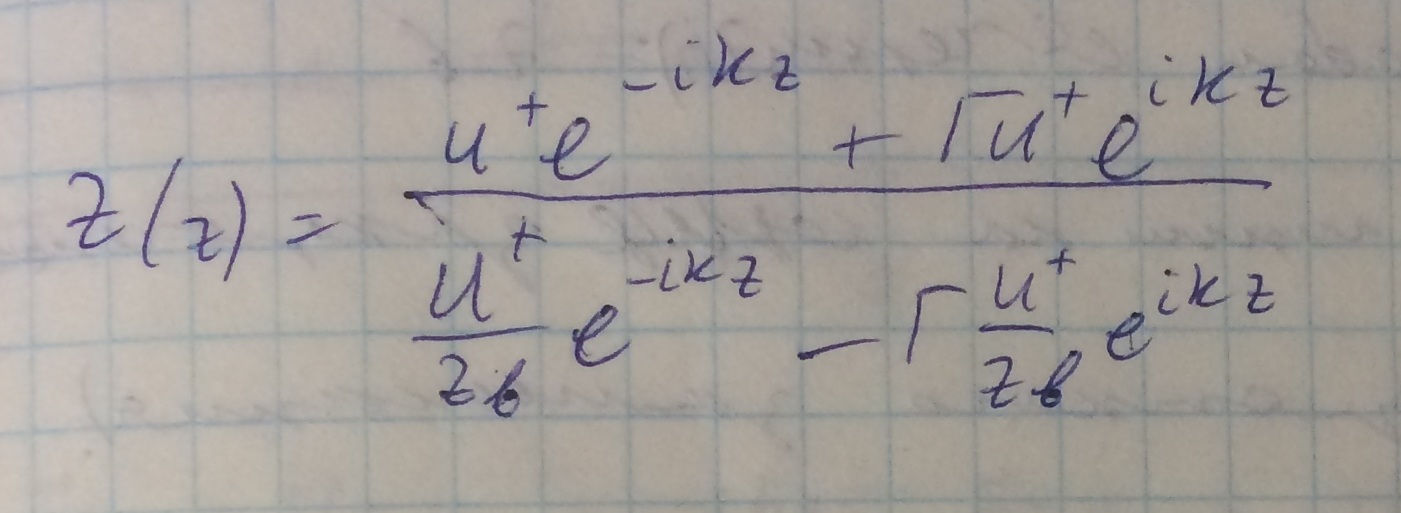 Z(z) = \frac{u^+ e^{-ikz} + Г u^+ e^{ikz}}{\frac{u^+}{z_в} e^{-ikz} - Г \frac{u^+}{z_в} e^{ikz}}